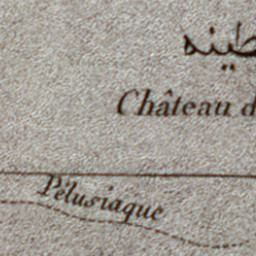 طينه
Château d
Pélusiaque